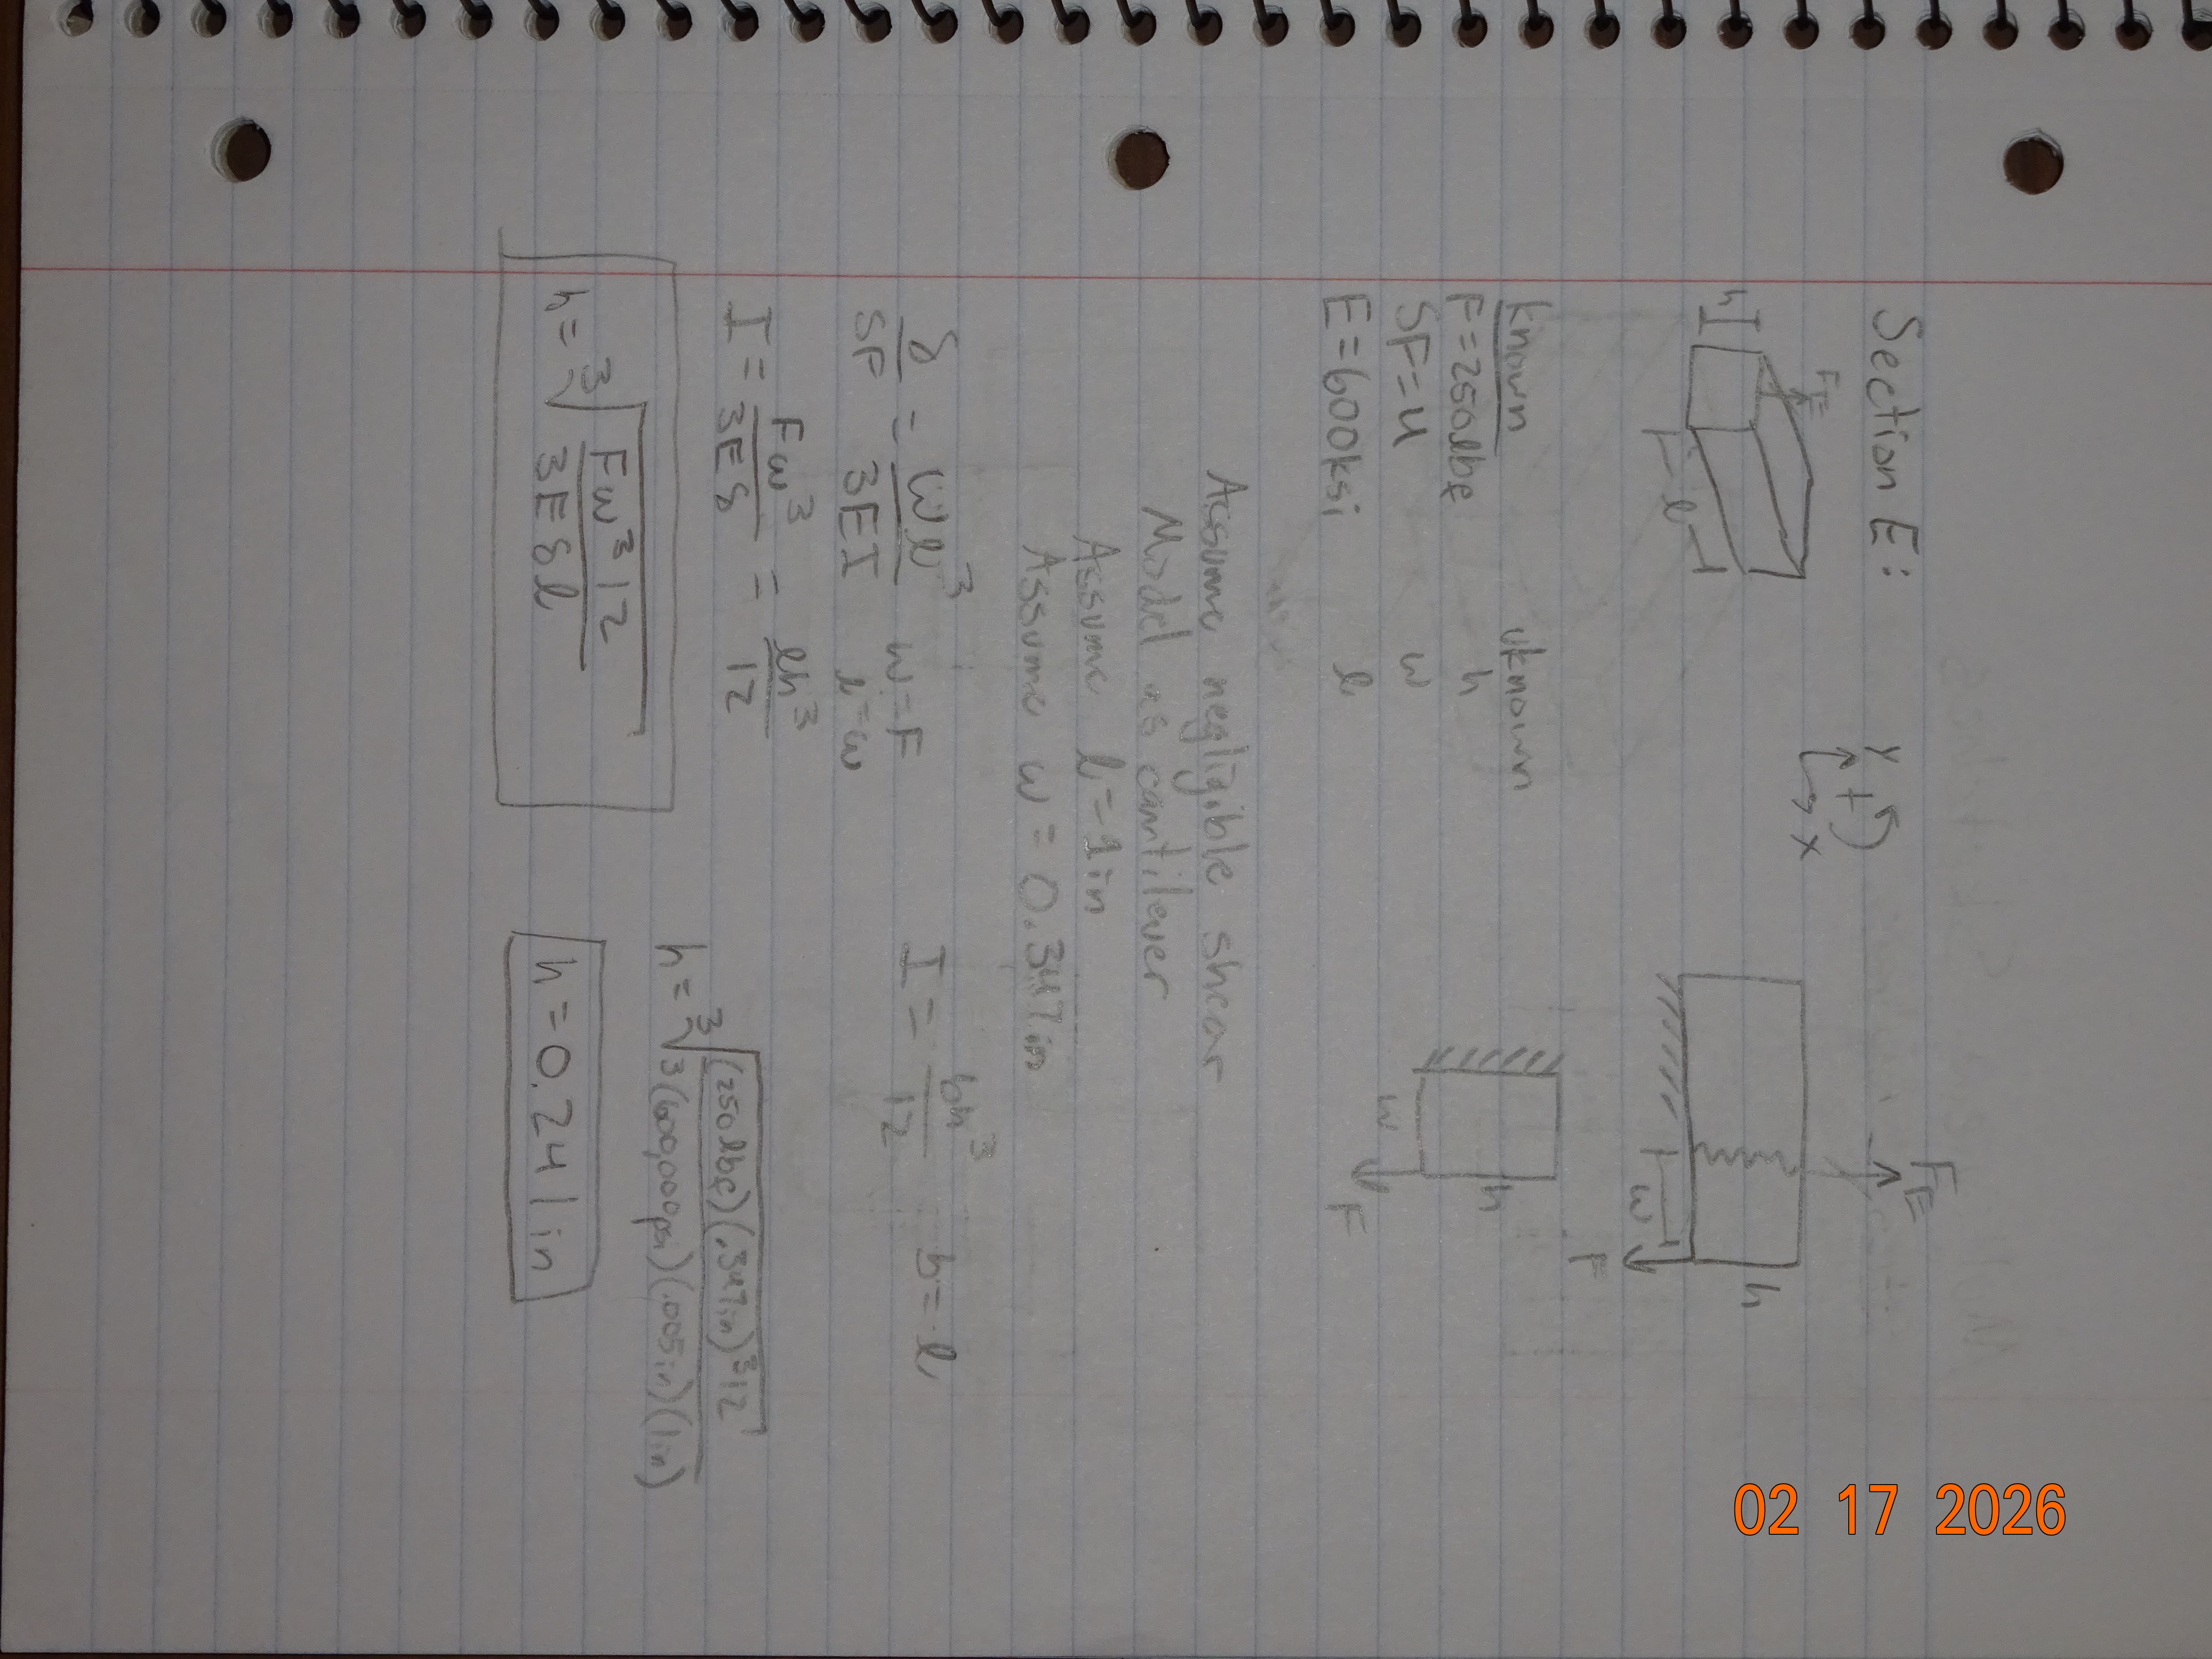 Section E:
Y
+
x
F_E
h
F_E
h
l
w
F
known
uknown
F=250lbf
h
SF=4
w
E=600ksi
l
h
w
F
Assume negligible shear
Model as cantilever
Assume l=1in
Assume w=0.347in
δ/SF = Wl³/3EI
W=F
l=w
I = bh³/12
b=l
I = Fw³/3Eδ = lh³/12
h = ³√(Fw³12/3Eδl)
h = ³√((250lbf)(.347in)³12/3(600,000psi)(.005in)(1in))
h=0.241in
02 17 2026